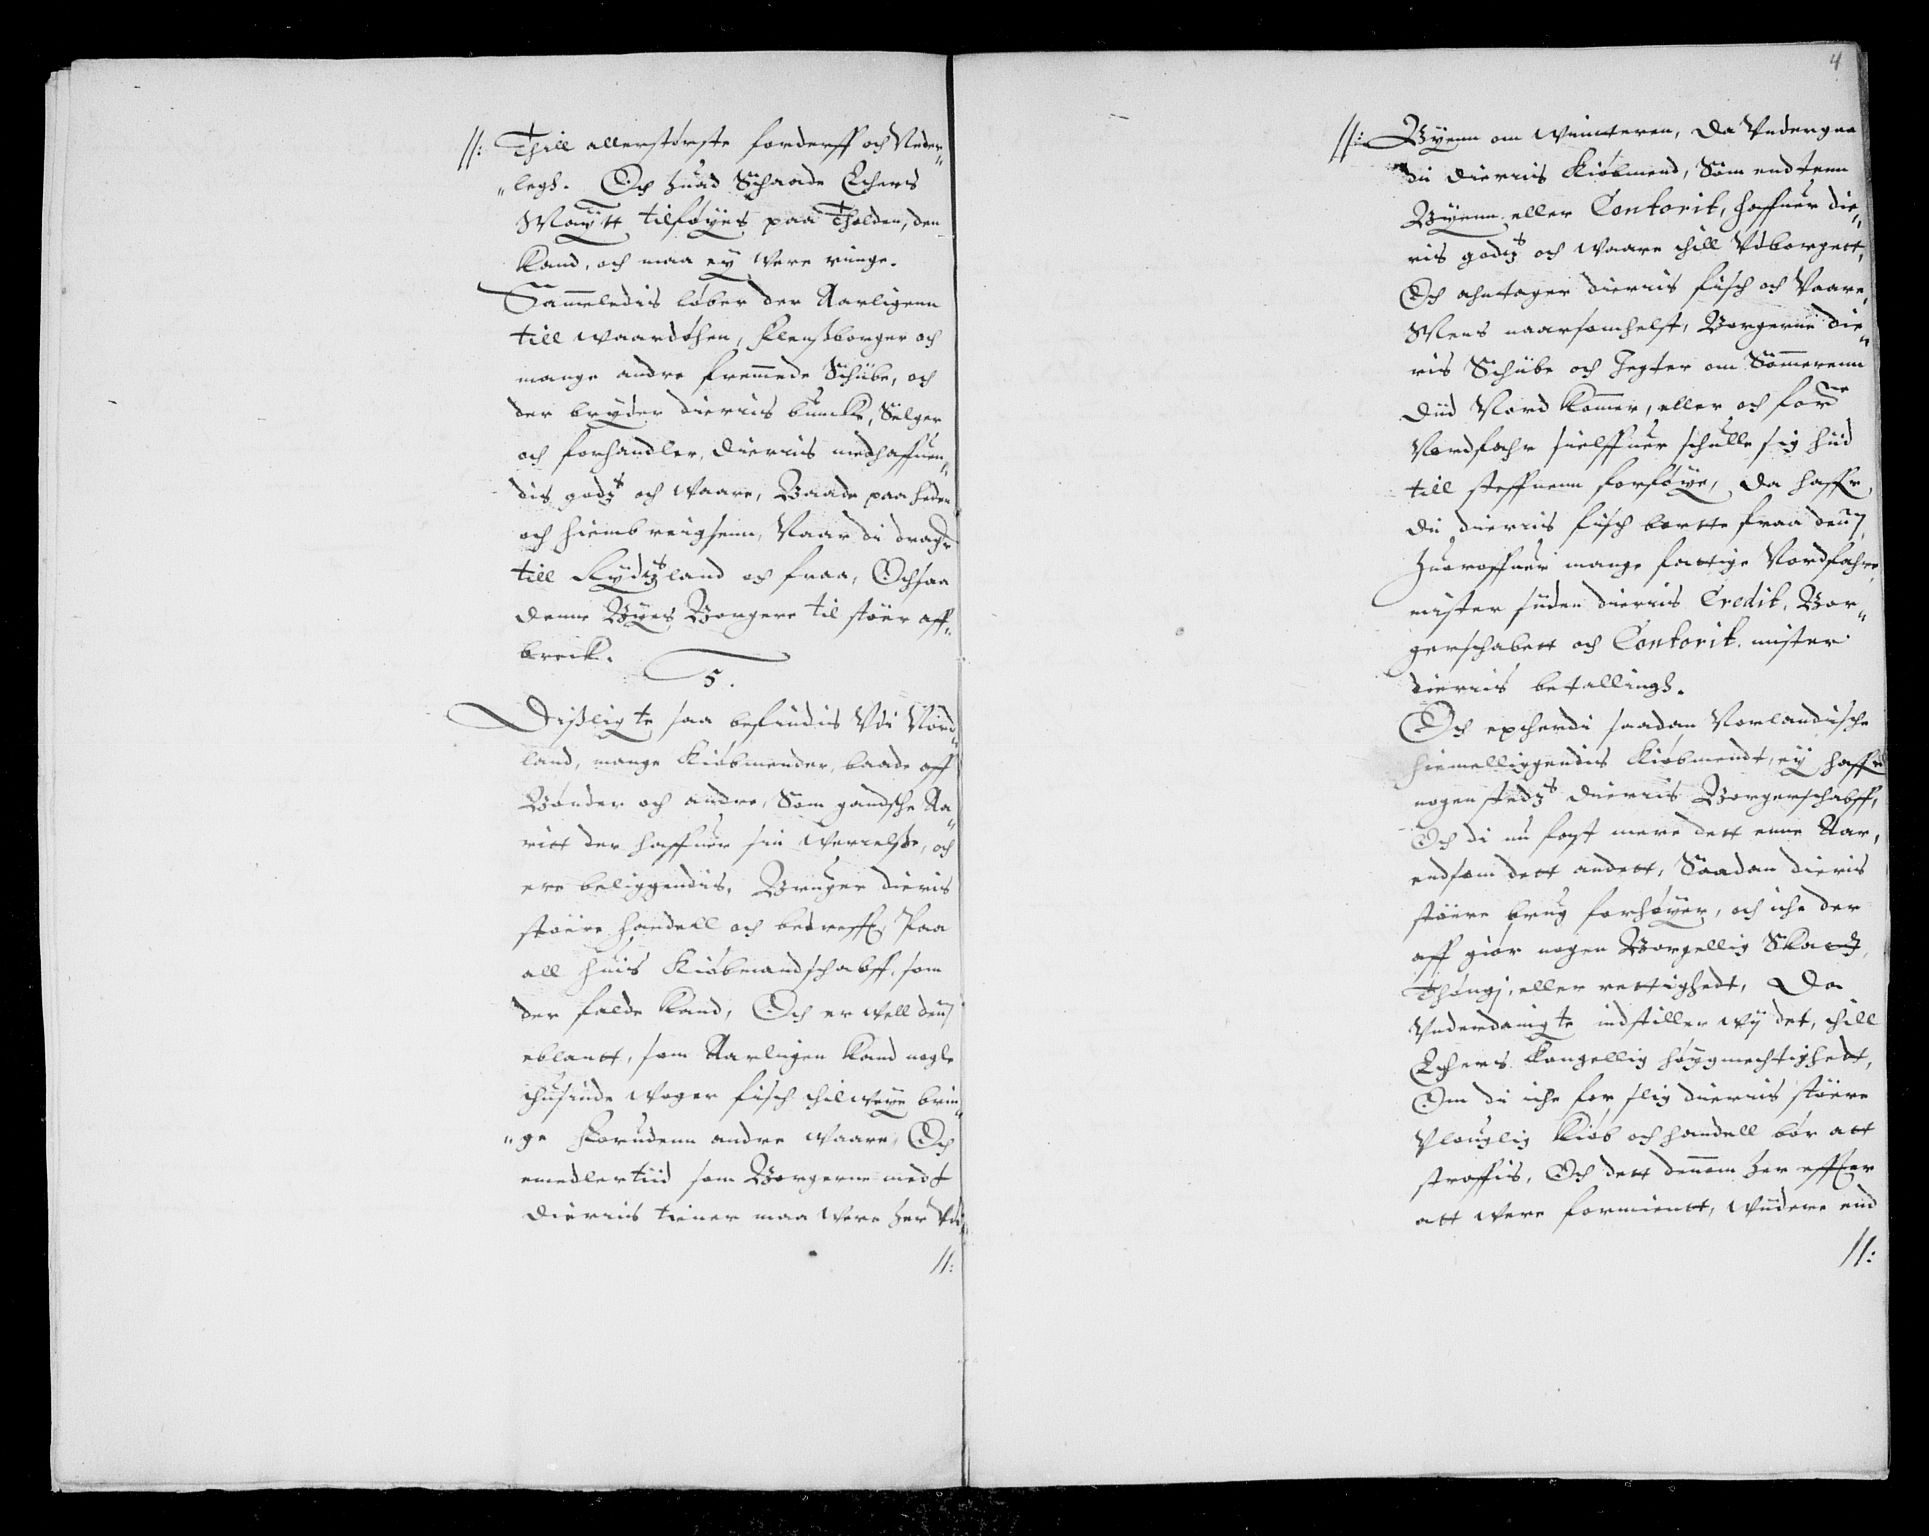 //: Thill allerstørste forderff och Neder„
„legh. Och huad Schaade Echers
Maytt tilføyes paa Tholden, den
kand, och maa ey were ringe.
Sammeledis løber der Aarligenn
till waardøhen, Flensborger och
mange andre fremmede Schibe, och
der bryder dierris buncke, Selger
och forhandler, dierris medhaffuen„
dis godtz och waare, Baade paa heden
och hiembreigsenn, Naar di dragr
till Rydtzland och fraa, Ochsaa
denne Byes Borgere til støer aff„
breck.
5.
Disligte saa befindis Vdi Nord„
land, mange Kiøbmender, baade aff
Bønder och andre, Som gandsche Aa„
ritt der haffuer sin werrelsse, och
ere beliggendis, Bruger dieris
støere handell och bedreff, Paa
all huis Kiøbmandschabff, som
der falde kand, Och er well denn
eblantt, som Aarligen kand nogle
thusinde woger fisch thilweye brin„
„ge Forudenn andre waare, Och
emedlertiid som Borgerne medt
dierris tiener maa were her Vdi
//:
4
//: Byenn om winteren, da Vndergaa
di dierris Kiøbmend, Som endtenn
Byenn eller Contorit, haffuer die„
ris godtz och waare thill Vdborgett,
Och ahntager dierris fisch och Vaare,
Mens naarsomhelst, Borgerne die„
ris Schibe och Jegter om Sommerenn
diid Nord kommer, eller och for
Nordfahr sielffuer schulle sig hiid
till steffnenn forføye, da haffr
di dierris fisch bortte fraa denn,
Huoroffuer mange fattige Nordfahre,
mister siden dierris Credit, Bor„
gerschabett och Contorit mister
dierris betallingh.
Och eptherdi saadan Norlandische
hiemelliggendis Kiøbmendt, ey haffr
nogenstedtz dierris Borgerschabff,
Och di nu fast mere dett enne Aar,
endsom dett andett, Saadan dieris
støere brug forhøyer, och iche der
aff giør nogen Borgellig Skat,
Thyngj, eller rettighedt, Da
Vnderdanigte indstiller wy det, thill
Echers kongellig høygmechtighedt,
Om di iche for slig dierris støere
Vlouglig kiøb och handell bør att
straffis, Och dett dennom her effter
att were formientt, widere end
//: